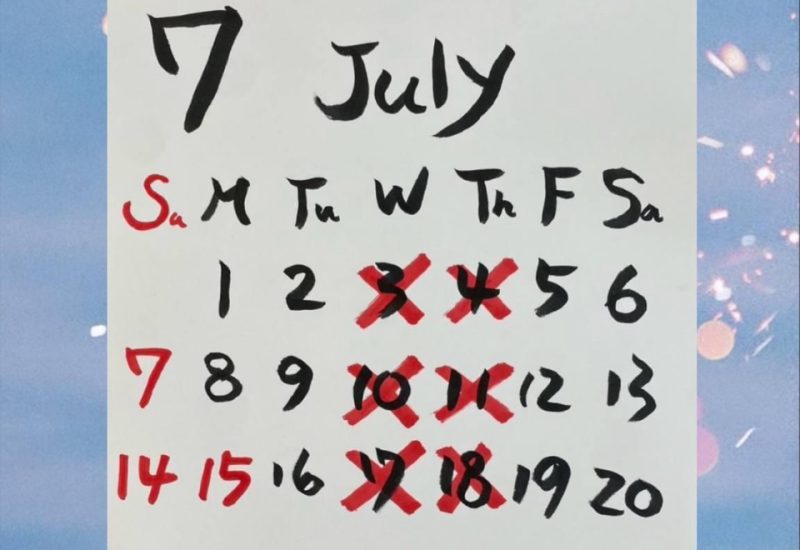 7 July
Su M Tu W Th F Sa
1 2 3 4 5 6
7 8 9 10 11 12 13
14 15 16 17 18 19 20